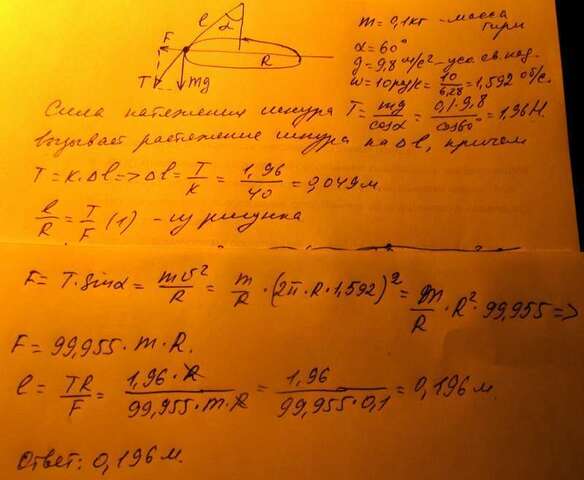 l
α
F
R
T
mg
m = 0,1 кг - масса
гири
α = 60°
g = 9,8 м/с² - уск. св. пад.
ω = 10 рад/с = 10/6,28 = 1,592 об/с.
Сила натяжения шнура T = mg/cosα = 0,1·9,8/cos60° = 1,96 Н.
вызывает растяжение шнура на Δl, причем
T = k·Δl => Δl = T/k = 1,96/40 = 0,049 м
l/R = T/F (1) - из рисунка
F = T·sinα = mv²/R = m/R · (2π·R·1,592)² = m/R · R² · 99,955 =>
F = 99,955·m·R.
l = TR/F = 1,96·R/99,955·m·R = 1,96/99,955·0,1 = 0,196 м.
Ответ: 0,196 м.